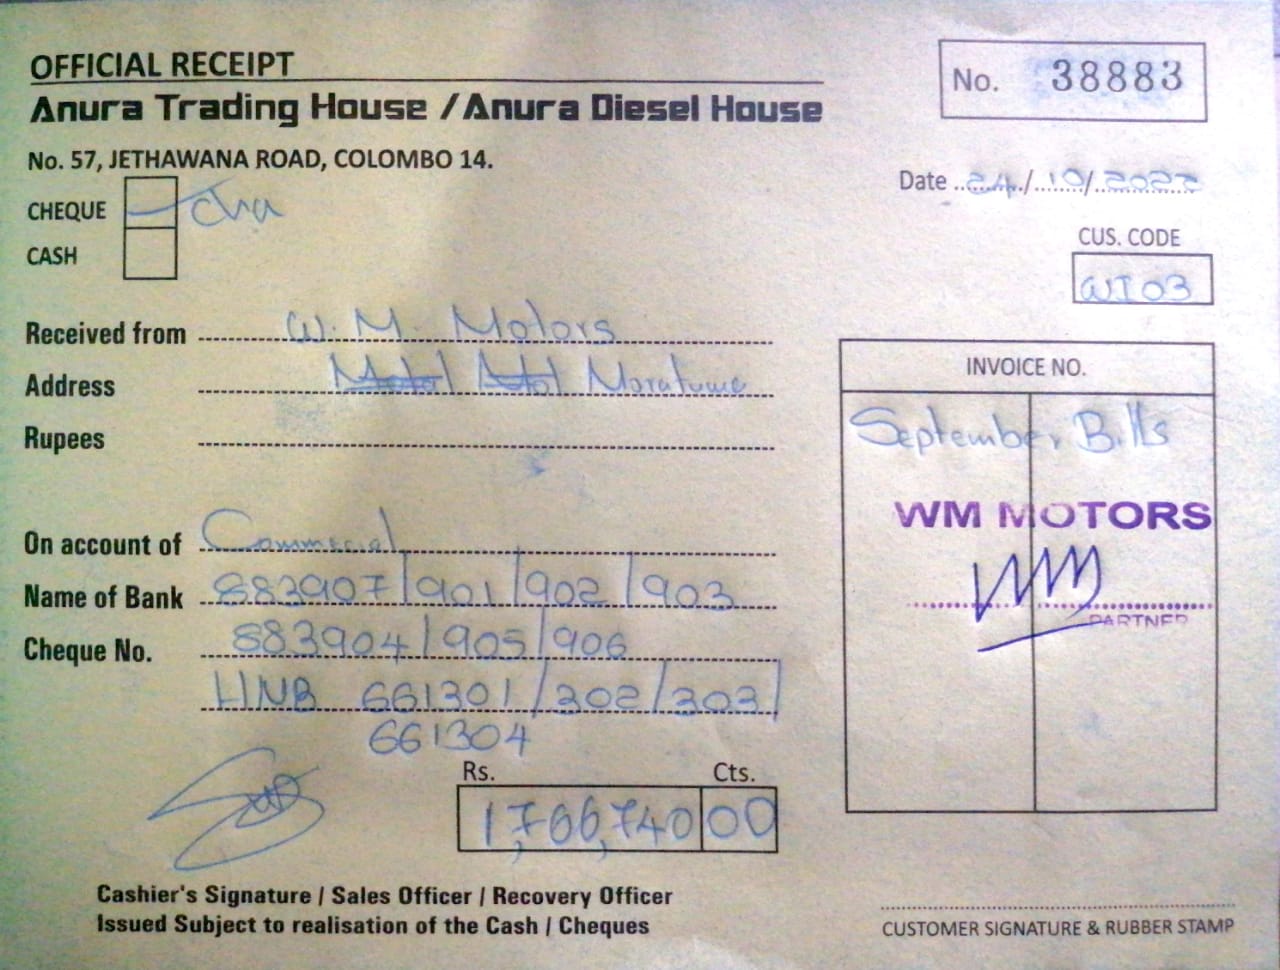 OFFICIAL RECEIPT
No. 38883
Anura Trading House / Anura Diesel House
No. 57, JETHAWANA ROAD, COLOMBO 14.
Date 24/10/2022
CHEQUE
CASH
CUS. CODE
WI 03
Received from W. M. Motors
Address Moratuwa
Rupees
INVOICE NO.
September Bills
WM MOTORS
PARTNER
On account of Commercial
Name of Bank 883907/901/902/903
Cheque No. 883904/905/906
HNB 661301/302/303/
661304
Rs. Cts.
1,766,740 00
Cashier's Signature / Sales Officer / Recovery Officer
Issued Subject to realisation of the Cash / Cheques
CUSTOMER SIGNATURE & RUBBER STAMP